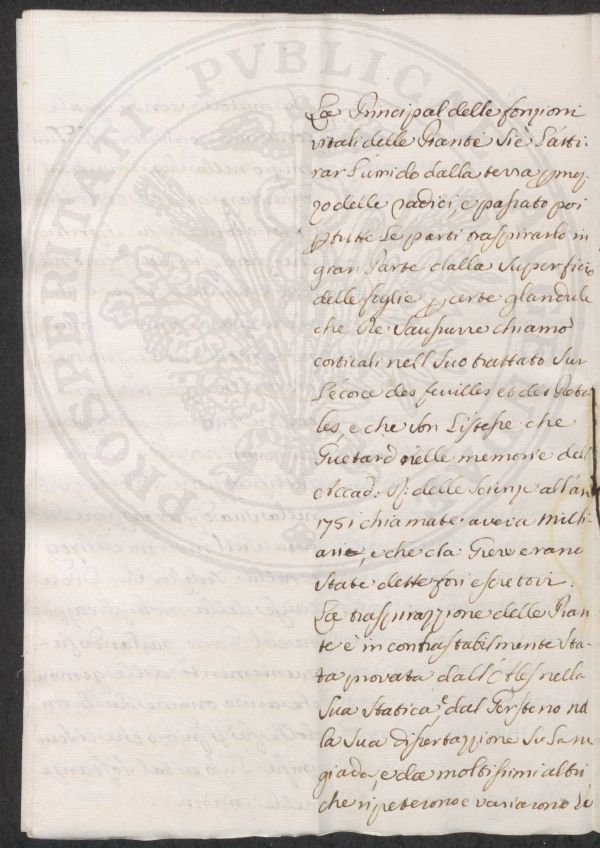 La Principal delle fonzioni
vitali delle Piante si è L'atti-
rar L'umido dalla terra p mez-
zo delle radici, e passato poi
p tutte Le parti traspirarlo in
gran Parte dalla superficie
delle foglie p certe glandule
che De Saussure chiamò
corticali nell suo trattato sur
L'écorce des feuilles et des Peta-
les, e che son L'istesse che
Guetard nelle memorie dell
Accad: R: delle Scienze all an
1751 chiamate aveva milli-
arie, e che da Grew erano
state dette fori escretori.
La traspirazzione delle Pian-
te è incontrastabilmente sta-
ta provata dall'Ales nella
sua statica, dal Gersteno nel
la sua dissertazzione su La ru-
giada, e da moltissimi altri
che ripeterono e variarono Le
PROSPERITATI PVBLICAE